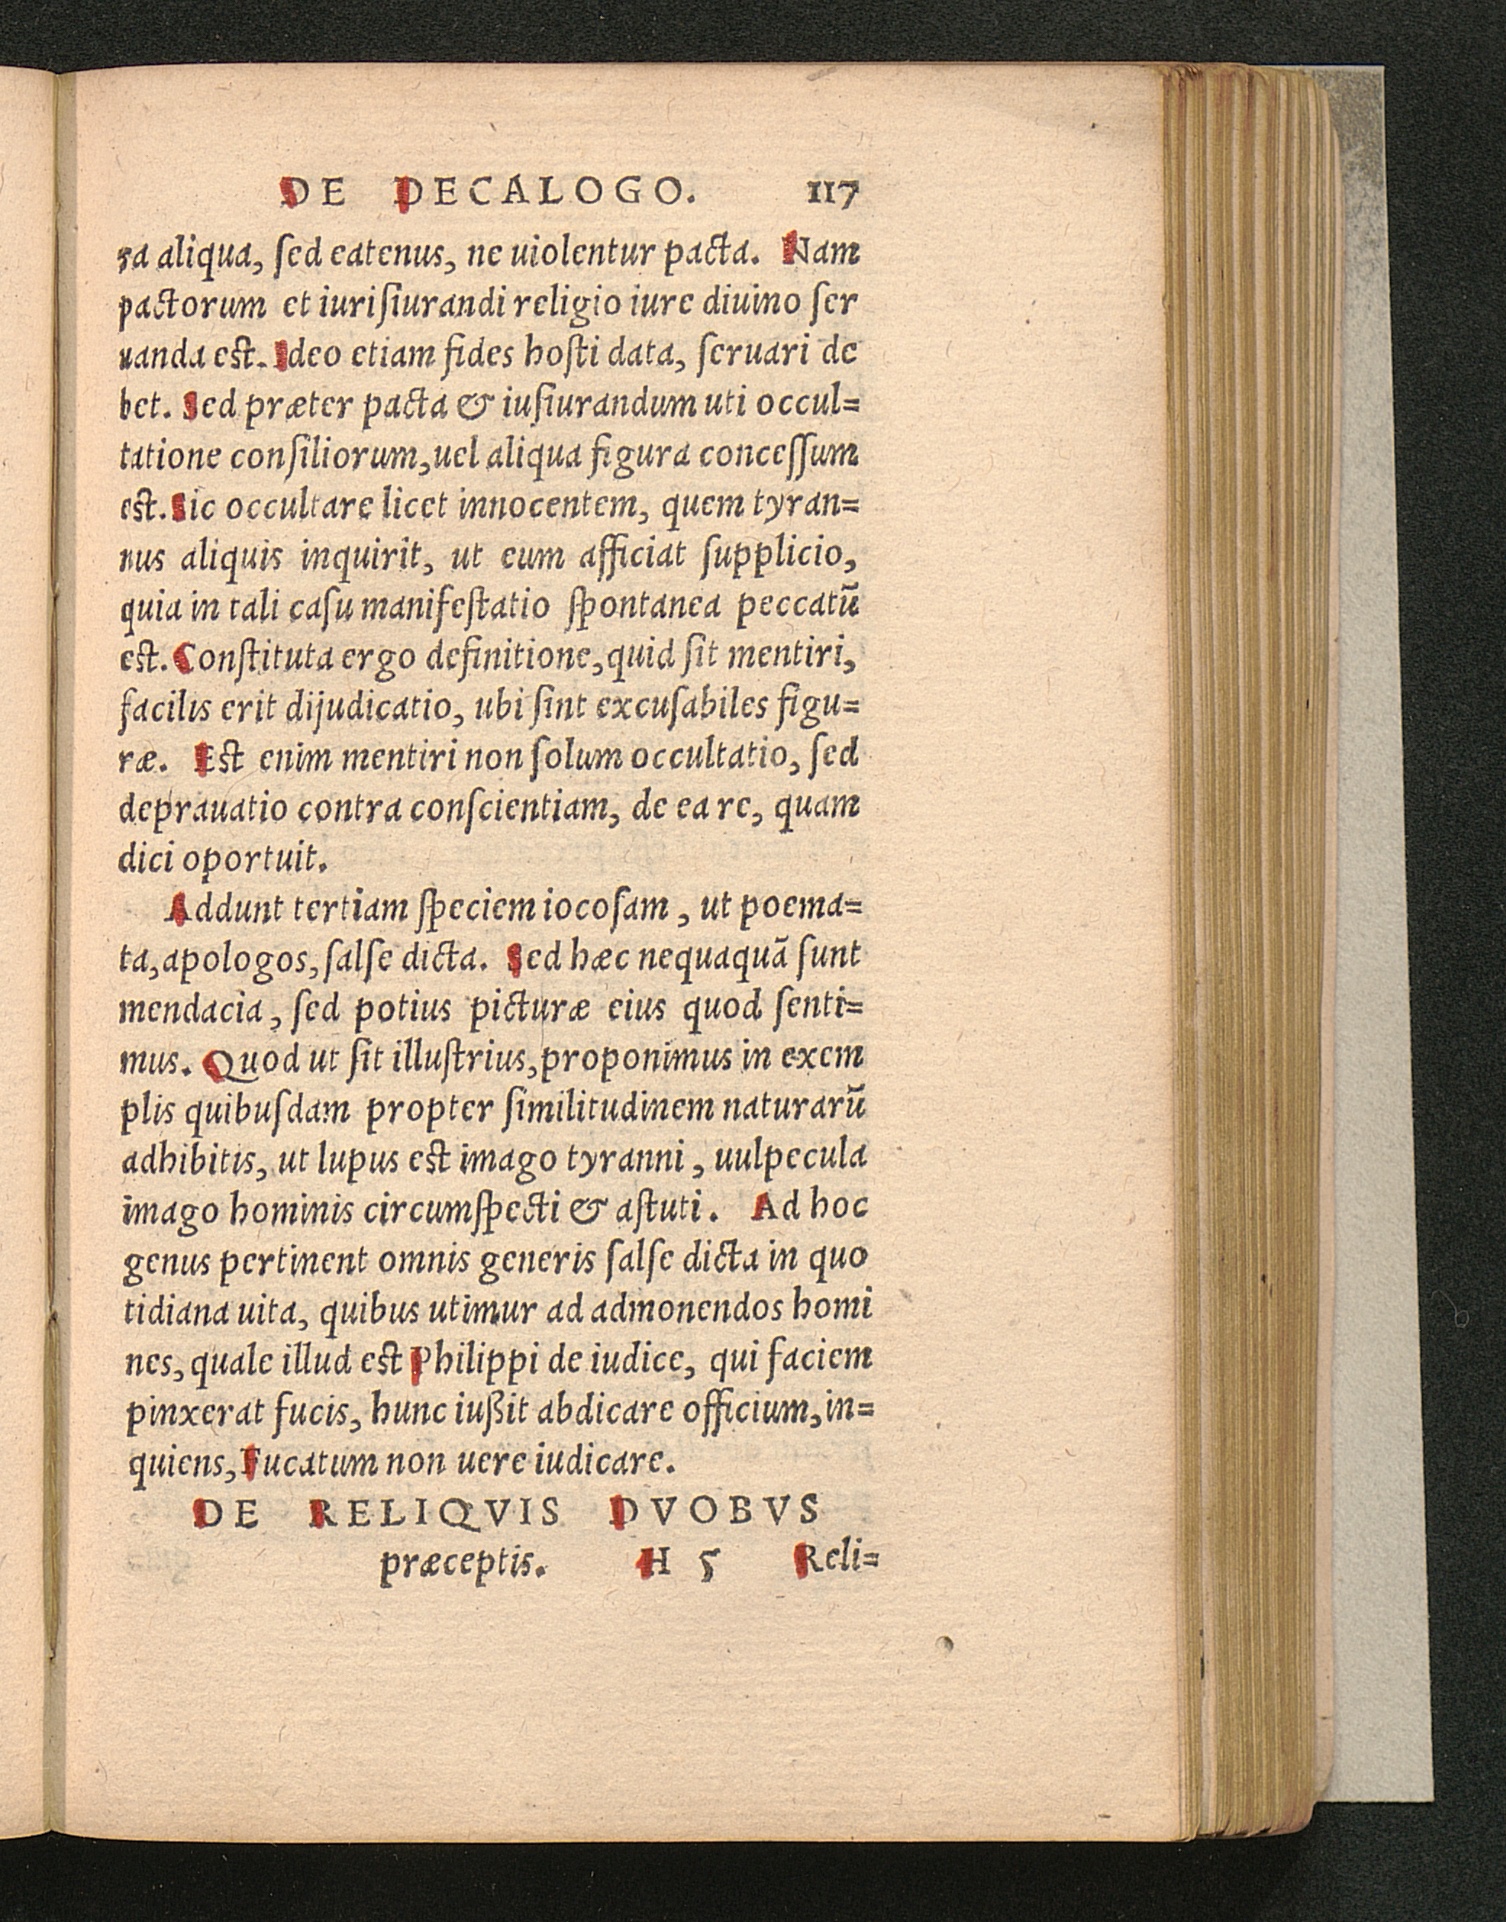 DE DECALOGO. 117
ra aliqua, ſed eatenus, ne uiolentur pacta. Nam
pactorum et iuriſiurandi religio iure diuino ſer
uanda eſt. Ideo etiam fides hoſti data, ſeruari de
bet. Sed præter pacta & iuſiurandum uti occul=
tatione conſiliorum, uel aliqua figura conceſſum
eſt. Sic occultare licet innocentem, quem tyran=
nus aliquis inquirit, ut eum afficiat ſupplicio,
quia in tali caſu manifeſtatio ſpontanea peccatũ
eſt. Conſtituta ergo definitione, quid ſit mentiri,
facilis erit dijudicatio, ubi ſint excuſabiles figu=
ræ. Eſt enim mentiri non ſolum occultatio, ſed
deprauatio contra conſcientiam, de ea re, quam
dici oportuit.
Addunt tertiam ſpeciem iocoſam, ut poema=
ta, apologos, ſalſe dicta. Sed hæc nequaquã ſunt
mendacia, ſed potius picturæ eius quod ſenti=
mus. Quod ut ſit illuſtrius, proponimus in exem
plis quibuſdam propter ſimilitudinem naturarũ
adhibitis, ut lupus eſt imago tyranni, uulpecula
imago hominis circumſpecti & aſtuti. Ad hoc
genus pertinent omnis generis ſalſe dicta in quo
tidiana uita, quibus utimur ad admonendos homi
nes, quale illud eſt Philippi de iudice, qui faciem
pinxerat fucis, hunc iußit abdicare officium, in=
quiens, Fucatum non uere iudicare.
DE RELIQVIS DVOBVS
præceptis. H 5 Reli=